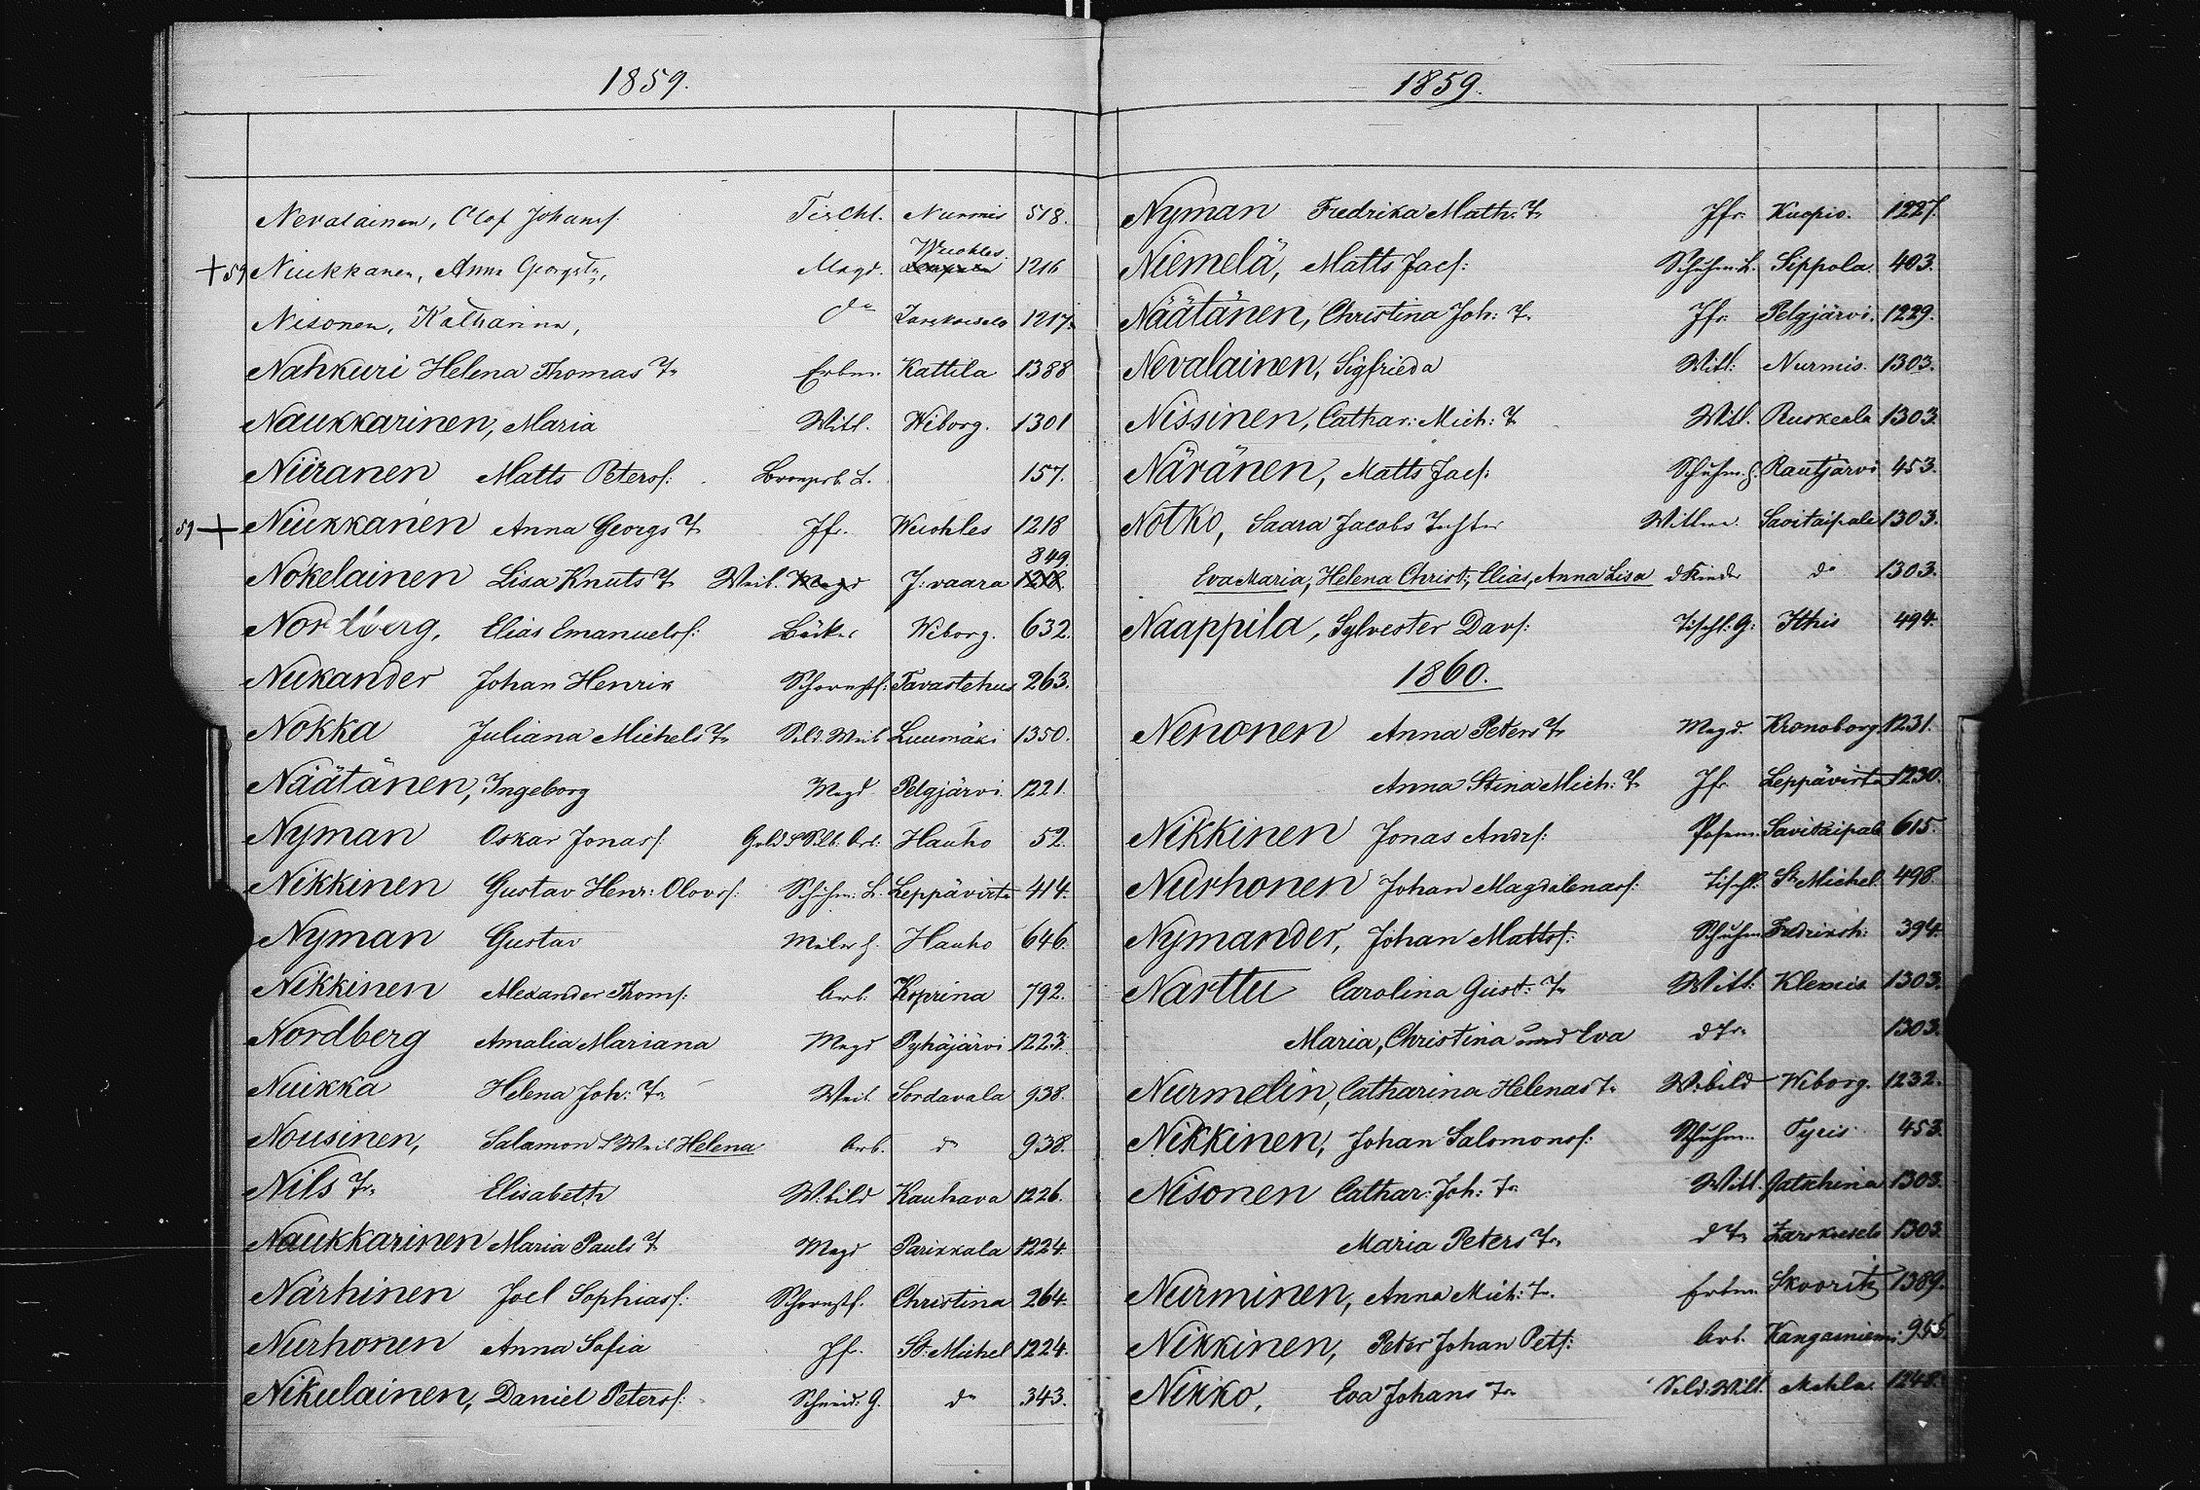 1859.
Nevalainen, Olof Johansf. Tischl. Nurmis 518.
Wuohles
+59 Niukkanen, Anna Georgs Tr, Magd. 1216
Nisonen, Katharina, do Zarskoeselo 1217.
Nahkuri Helena Thomas Tr Erbm. Kattila 1388
Naukkarinen, Maria Witl. Wiborg. 1301
Niiranen Matts Petersf: L. 157.
59 + Niukkanen Anna Georgs Tr Jfr. Wuohles 1218
849.
Nokelainen Lisa Knuts Tr Weib. Magd J:vaara 1218.
Nordberg, Elias Emanuelsf: Bäcker Wiborg. 632.
Nukander Johan Henrik Schornstf: Tavastehus 263.
Nokka Juliana Michels Tr Sold. Weib Luumäki 1350.
Näätänen, Ingeborg Magd Pelgjärvi 1221.
Nyman Oskar Jonasf. Gold & Silb: Arb: Hauho 52.
Nikkinen Gustav Henr: Olovsf. Schuhm. L. Leppävirta 414.
Nyman Gustav Maler G. Hauho 646.
Nikkinen Alexander Thomsf: Arb. Koprina 792.
Nordberg Amalia Mariana Magd Pyhäjärvi 1223.
Nuikka Helena Joh: Tr Weib. Sordavala 938.
Nousinen, Salamon & Weib Helena Arb. do 938.
Nils Tr. Elisabeth Wbild Kauhava 1226.
Naukkarinen Maria Pauls Tr Magd Parikkala 1224.
Närhinen Joel Sophiasf: Schornstf. Christina 264.
Nurhonen Anna Sofia Jfr. St: Michel 1224.
Nikulainen, Daniel Petersf: Schneid: G. do 343.
1859.
Nyman Fredrika Math: Tr Jfr. Kuopio. 1227.
Niemelä, Matts Jacf: Schuhm: L. Sippola. 403.
Näätänen, Christina Joh: Tr. Jfr. Pelgjärvi. 1229.
Nevalainen, Sigfrieda Witl: Nurmis. 1303.
Nissinen, Cathar: Mich: Tr Witl. Ruskeala 1303.
Näränen, Matts Jacf: Schuhm. G. Rautjärvi 453.
Notko, Saara Jacobs Tochter Wittwe. Savitaipale 1303.
Eva Maria, Helena Christ:, Elias, Anna Lisa d Kinder do 1303.
Naappila, Sylvester Davf: Tischl: G: Ithis 494.
1860.
Nenonen Anna Peters Tr Magd. Kronoborg 1231.
Anna Stina Mich: Tr Jfr Leppävirta 1230.
Nikkinen Jonas Andrf: Posam. Savitaipale 615.
Nurhonen Johan Magdalenasf: Tischl: St Michel 498.
Nymander, Johan Mattsf: Schuhm Fredriksh: 394.
Narttu Carolina Gust: Tr Witl: Klemis 1303.
Maria, Christina und Eva d Tr. 1303.
Nurmelin, Catharina Helenas Tr Wbild Wiborg. 1232.
Nikkinen, Johan Salomonsf: Schuhm. Tyris 453.
Nisonen Cathar: Joh: Tr Witl. Gatshina 1303.
Maria Peters Tr. d Tr Zarskoeselo 1303.
Nurminen, Anna Mich: Tr. Erbm Skvoritz 1389.
Nikkinen, Peter Johan Petf: Arb. Kangasniemi
Nikko, Eva Johans Tr Sold: Witl. 1248.